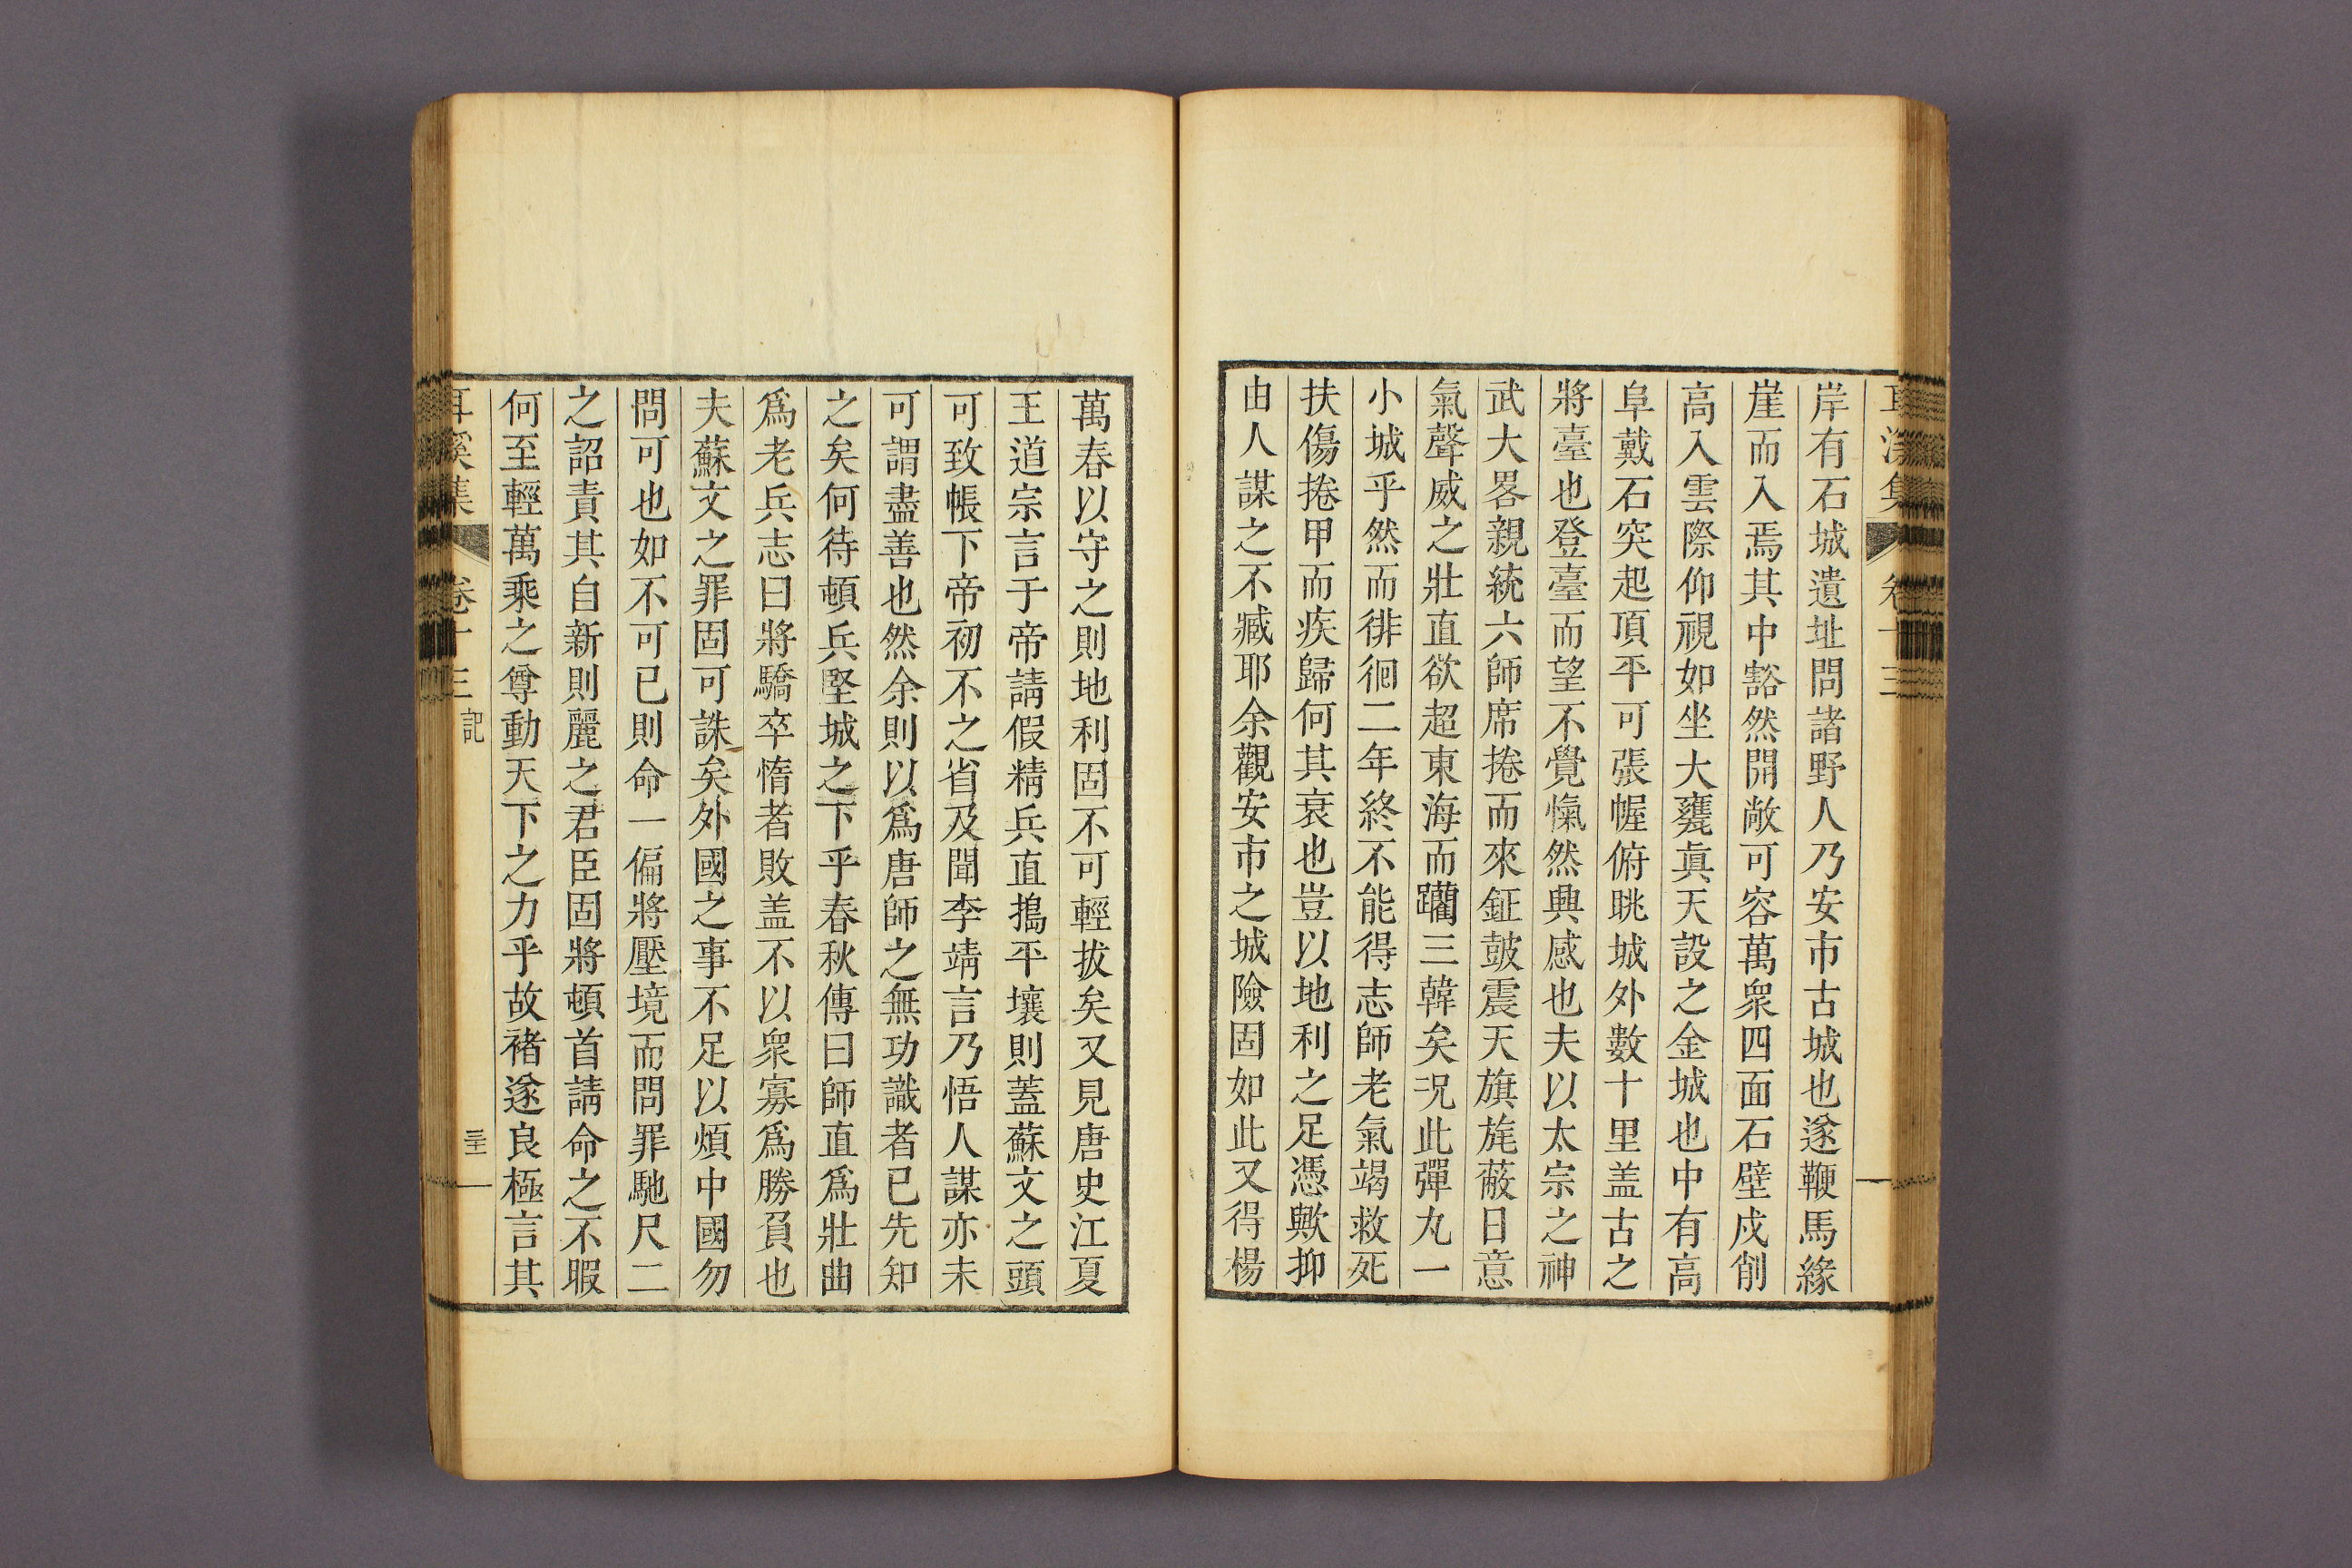 耳溪集 卷十三
岸有石城遺址問諸野人乃安市古城也遂鞭馬緣
崖而入焉其中豁然開敞可容萬衆四面石壁戍削
高入雲際仰視如坐大甕眞天設之金城也中有高
阜戴石突起頂平可張幄俯眺城外數十里盖古之
將臺也登臺而望不覺愾然興感也夫以太宗之神
武大畧親統六師席捲而來鉦皷震天旗旄蔽日意
氣聲威之壯直欲超東海而躪三韓矣况此彈丸一
小城乎然而徘徊二年終不能得志師老氣竭救死
扶傷捲甲而疾歸何其衰也豈以地利之足憑歟抑
由人謀之不臧耶余觀安市之城險固如此又得楊
萬春以守之則地利固不可輕拔矣又見唐史江夏
王道宗言于帝請假精兵直搗平壤則蓋蘇文之頭
可致帳下帝初不之省及聞李靖言乃悟人謀亦未
可謂盡善也然余則以爲唐師之無功識者已先知
之矣何待頓兵堅城之下乎春秋傳曰師直爲壯曲
爲老兵志曰將驕卒惰者敗盖不以衆寡爲勝負也
夫蘇文之罪固可誅矣外國之事不足以煩中國勿
問可也如不可已則命一偏將壓境而問罪馳尺二
之詔責其自新則麗之君臣固將頓首請命之不暇
何至輕萬乘之尊動天下之力乎故褚遂良極言其
耳溪集 卷十三 記